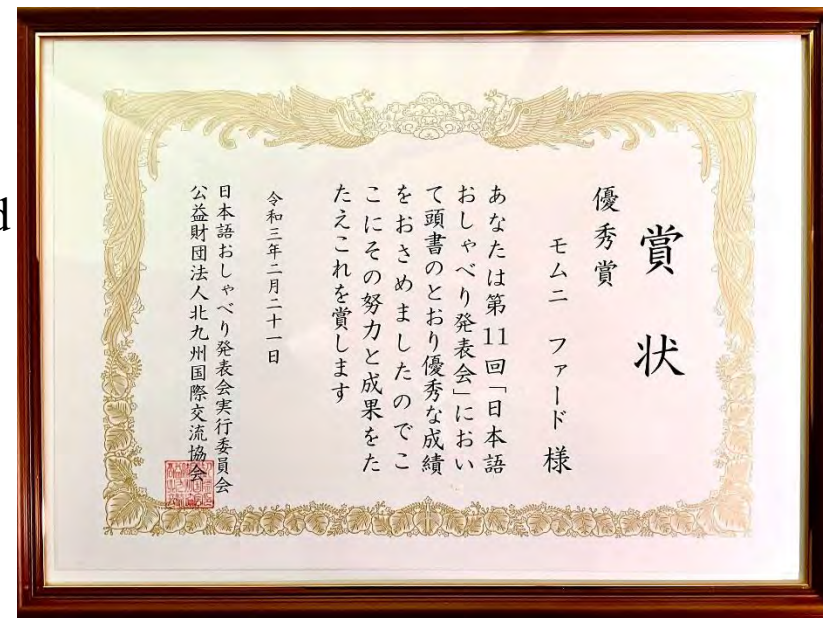 賞状
優秀賞
モムニ ファード 様
あなたは第11回「日本語
おしゃべり発表会」におい
て頭書のとおり優秀な成績
をおさめましたのでこ
こにその努力と成果をた
たえこれを賞します
令和三年二月二十一日
日本語おしゃべり発表会実行委員会
公益財団法人北九州国際交流協会
d